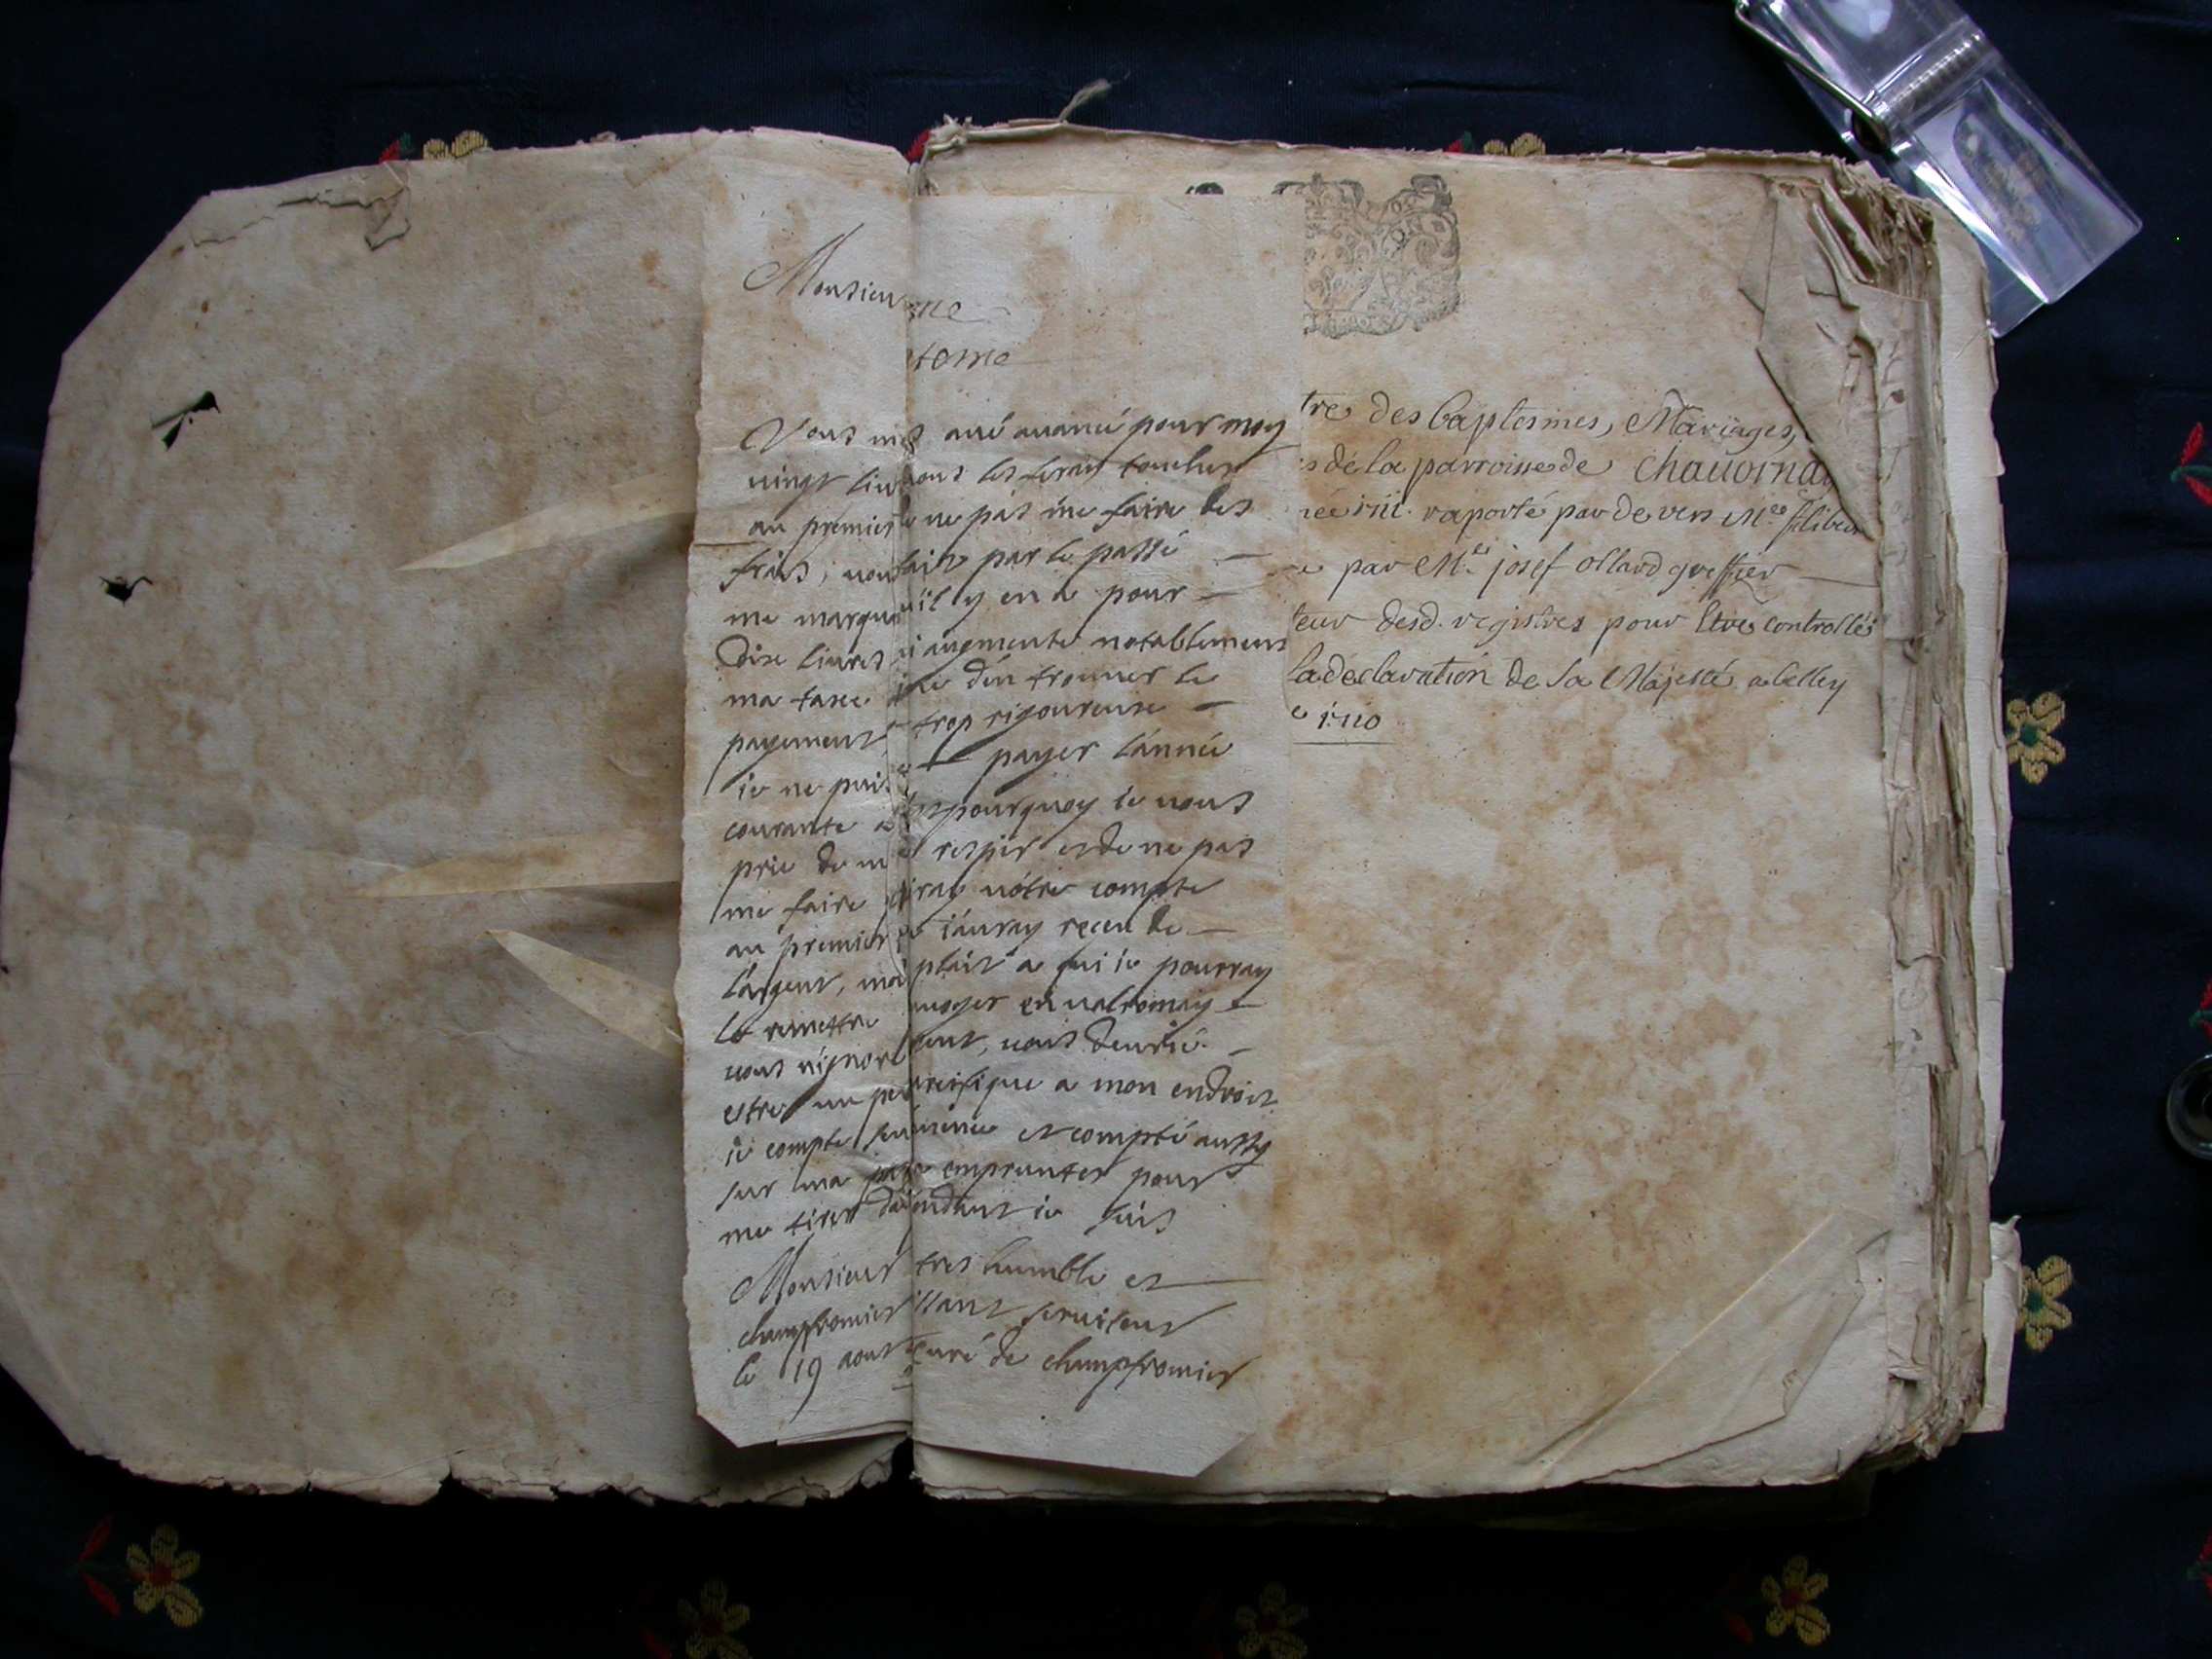 Monsieur
me
tome
Vous m avé auancé pour moy
vingt liu ous les feray toucher
au premier ne pas me faire des
frais, vous fait par le passé
me marque u'il y en a pour
dixe liures augmente notablement
ma taxe d'en trouuer le
payement trop rigoureuse
ie ne puis payer lánnée
courante pourquoy ie vous
prie de respir et de ne pas
me faire iray vótre compte
au premier iáuray receu de
lárgent, ma plait a qui ie pourray
le remettre uoyer en valromay
vous nígnore vous deurié
estre un peu cifique a mon endroit
ie compte et compté aussy
sur ma emprunter pour
me tirer endant ie suis
Monsieur tres humble et
champfromier issant seruiteur
le 19 aout curé de champfromier
tre des baptesmes, Mariages,
s de la parroisse de Chauorna
née 1711. raporté par devers Me. filiber
e par Me. josef ollard greffier
teur desd. registres pour Etre controllés
la déclaration de Sa Majesté a belley
e 1710